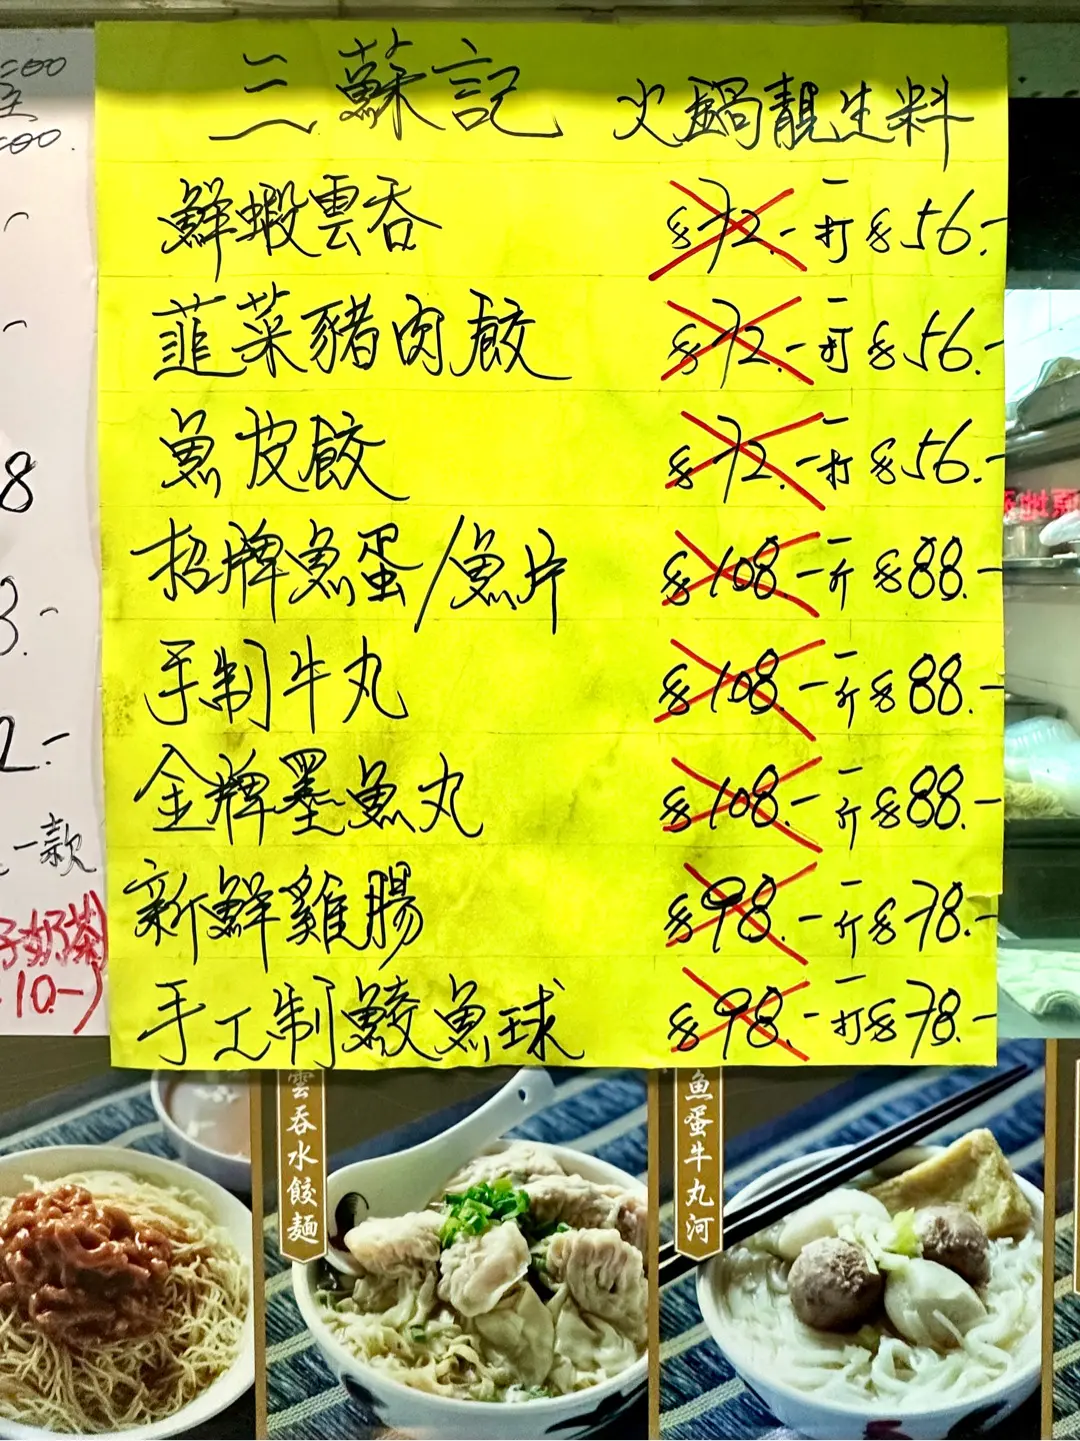 三蘇記 火鍋靚生料
鮮蝦雲吞 $72.- 一打 $56.-
韮菜豬肉餃 $72.- 一打 $56.-
魚皮餃 $72.- 一打 $56.-
招牌魚蛋/魚片 $108.- 一斤 $88.-
手制牛丸 $108.- 一斤 $88.-
金牌墨魚丸 $108.- 一斤 $88.-
新鮮雞腸 $98.- 一斤 $78.-
手工制鯪魚球 $98.- 一打 $78.-
:00
:00.
8
3.-
2.-
一款
仔奶茶
10.-)
雲吞水餃麵
魚蛋牛丸河